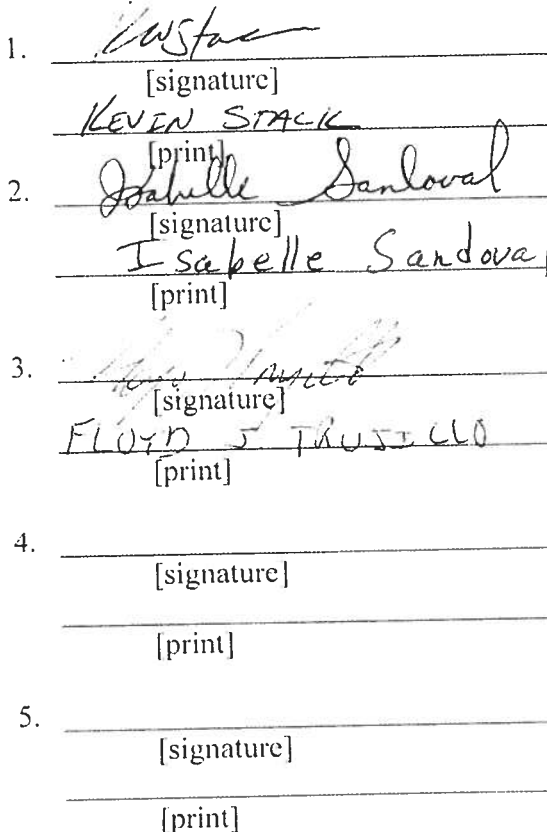 1.
[signature]
KEVEN STACK
[print]
2. Isabelle Sandoval
[signature]
Isabelle Sandoval
[print]
3.
[signature]
FLOYD J TRUJILLO
[print]
4.
[signature]
[print]
5.
[signature]
[print]